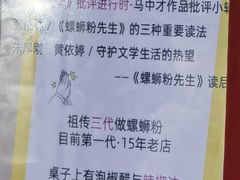 》批评进行时·马中才作品批评小辑
/《螺蛳粉先生》的三种重要读法
黄依婷 / 守护文学生活的热望
——《螺蛳粉先生》读后
祖传三代做螺蛳粉
目前第一代·15年老店
桌子上有泡椒醋与辣椒油